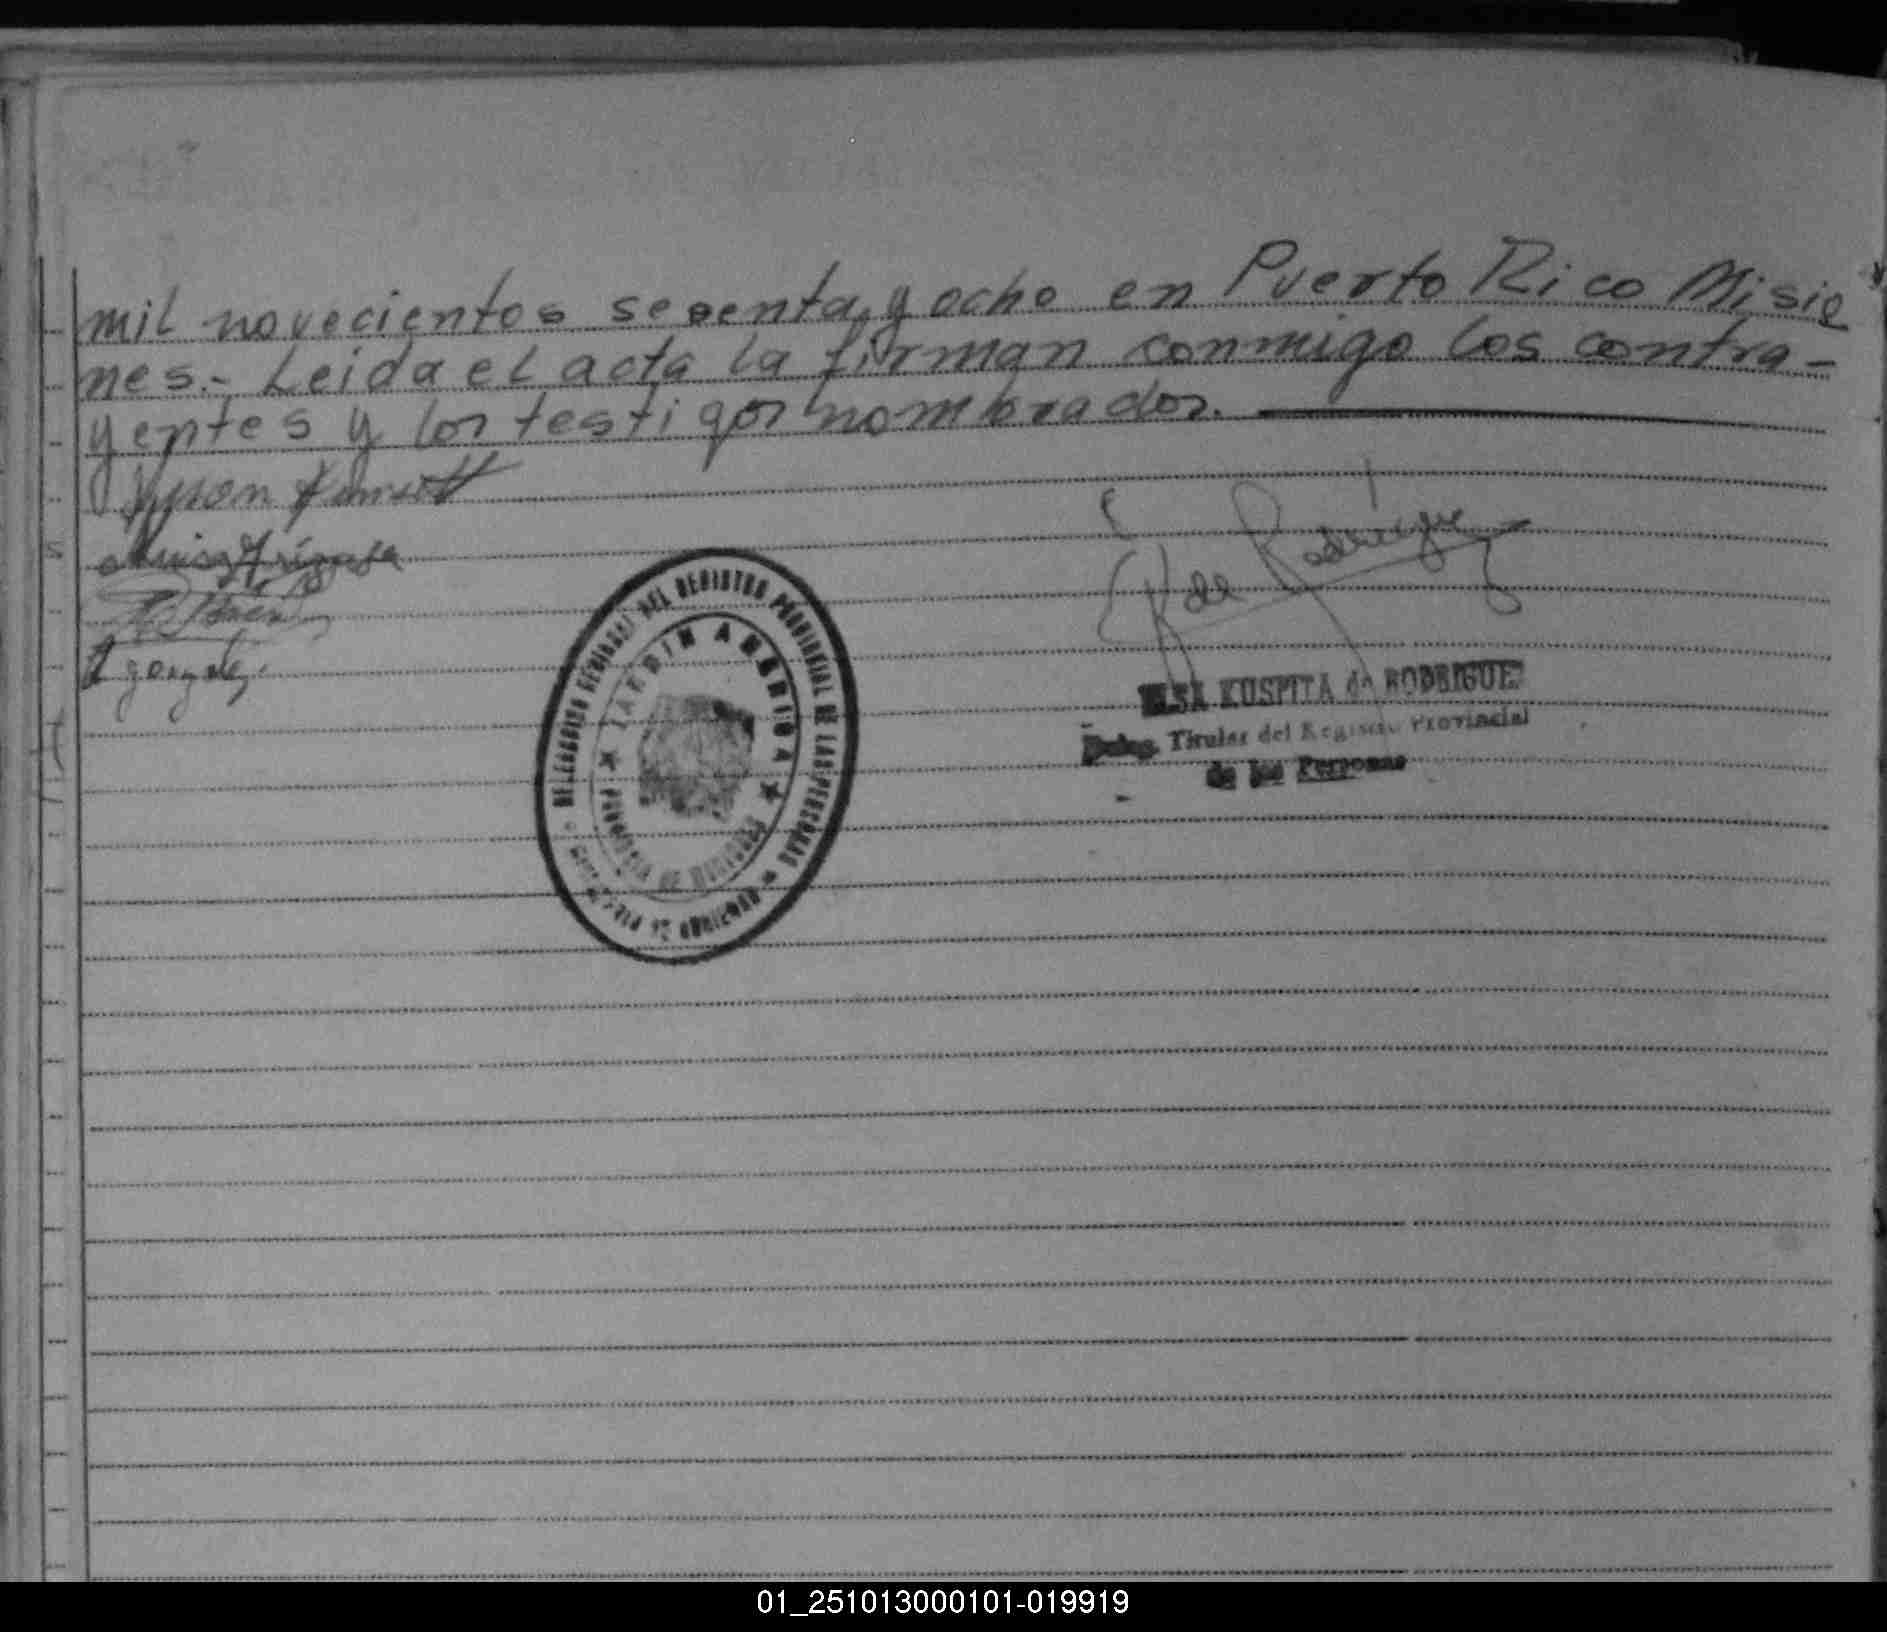 mil novecientos sesenta y ocho en Puerto Rico Misio
nes.- Leida el acta la firman conmigo los contra-
yentes y los testigos nombrados.
gonzalez.
de Rodrigue
DELEGACION REGIONAL DEL REGISTRO PROVINCIAL DE LAS PERSONAS
JARDIN AMERICA
PROVINCIA DE MISIONES
ELSA KUSPITA de RODRIGUEZ
Deleg. Titular del Registro Provincial
de las Personas
01_251013000101-019919